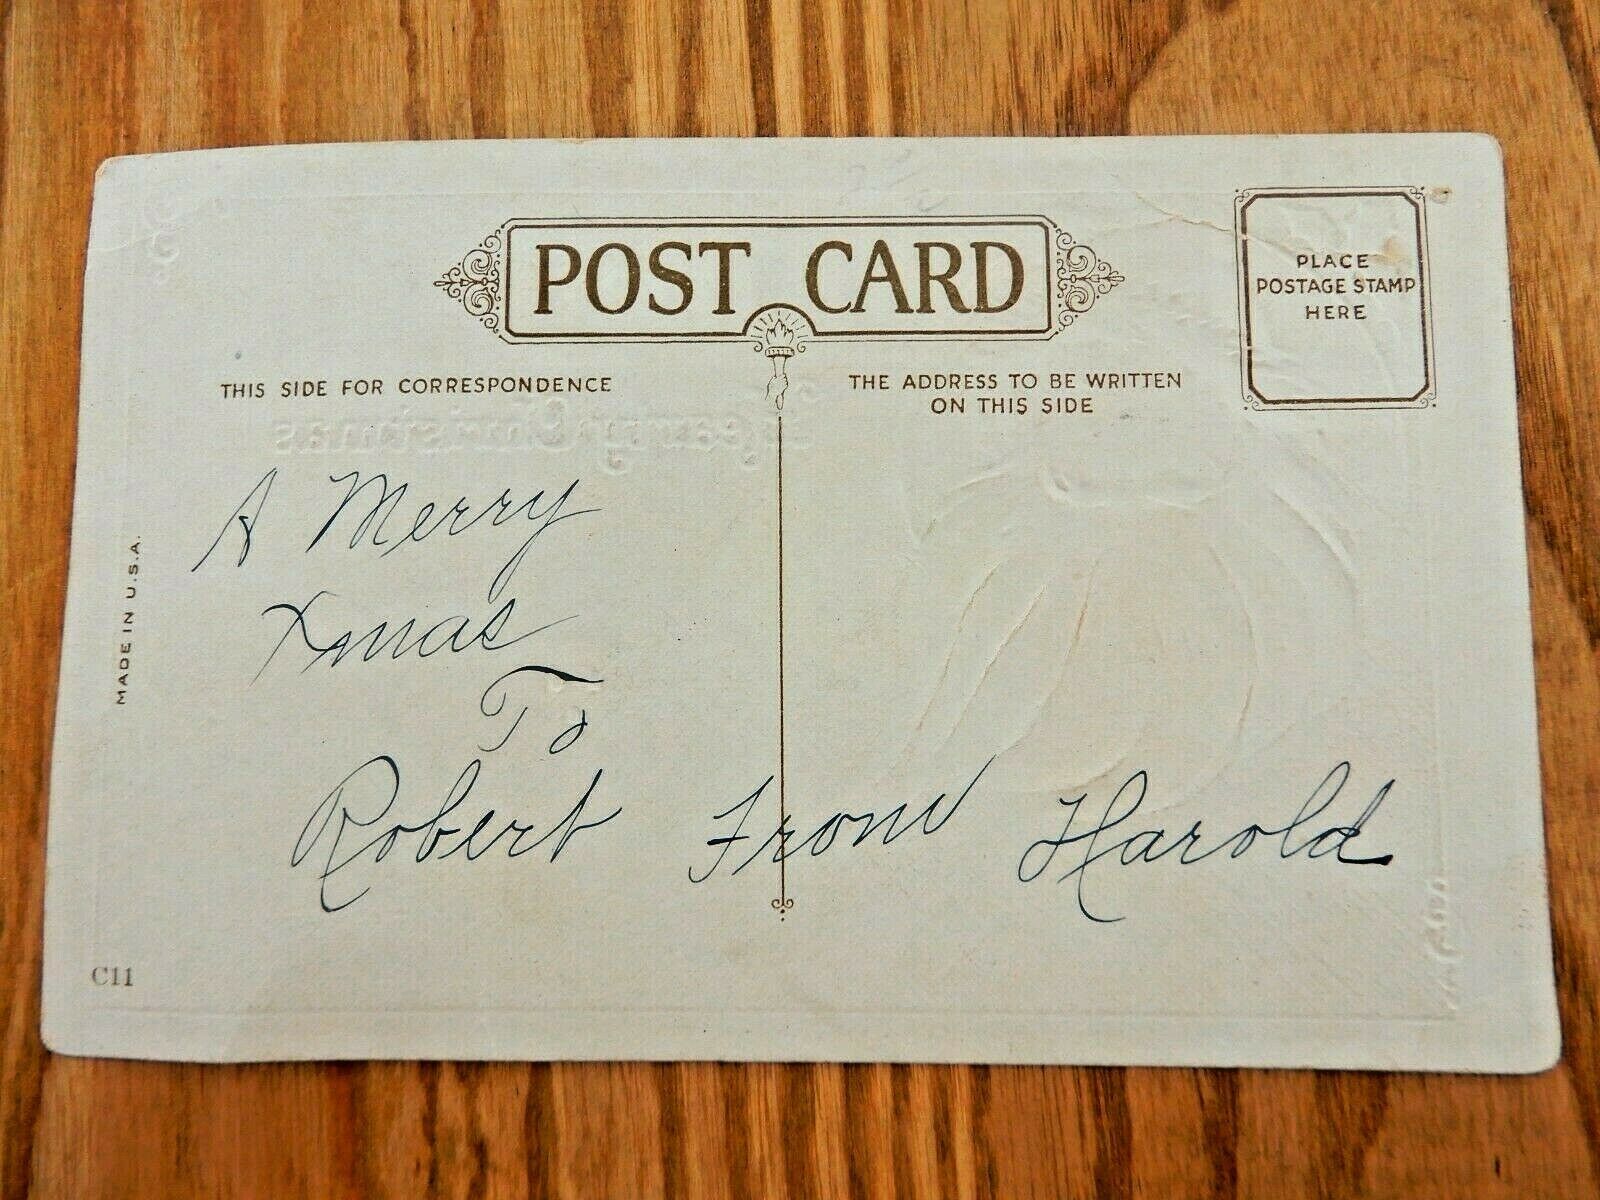 POST CARD
PLACE
POSTAGE STAMP
HERE
THIS SIDE FOR CORRESPONDENCE
THE ADDRESS TO BE WRITTEN
ON THIS SIDE
A Merry
Xmas
To
Robert From Harold
MADE IN U.S.A.
C11